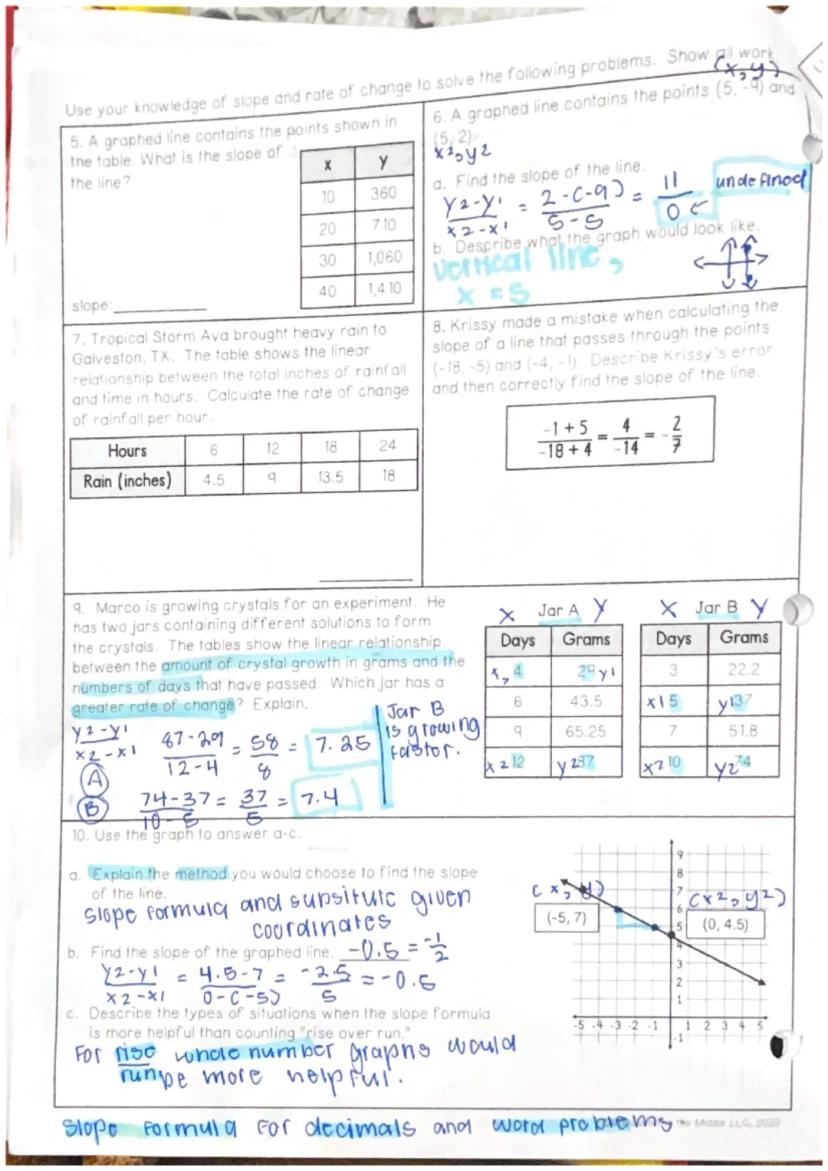 Use your knowledge of slope and rate of change to solve the following problems. Show all work.
5. A graphed line contains the points shown in
the table. What is the slope of
the line?
x y
10 360
20 710
30 1,060
40 1,410
slope:
(x, y)
6. A graphed line contains the points (5, -9) and
(5, 2).
x2, y2
a. Find the slope of the line.
y2-y1 / x2-x1 = 2-(-9) / 5-5 = 11 / 0 ← undefined
b. Describe what the graph would look like.
vertical line,
x = 5
7. Tropical Storm Ava brought heavy rain to
Galveston, TX. The table shows the linear
relationship between the total inches of rainfall
and time in hours. Calculate the rate of change
of rainfall per hour.
Hours 6 12 18 24
Rain (inches) 4.5 9 13.5 18
8. Krissy made a mistake when calculating the
slope of a line that passes through the points
(-18, -5) and (-4, -1). Describe Krissy's error
and then correctly find the slope of the line.
-1 + 5 / -18 + 4 = 4 / -14 = - 2 / 7
9. Marco is growing crystals for an experiment. He
has two jars containing different solutions to form
the crystals. The tables show the linear relationship
between the amount of crystal growth in grams and the
numbers of days that have passed. Which jar has a
greater rate of change? Explain.
y2-y1 / x2-x1
A
87-29 / 12-4 = 58 / 8 = 7.25
B
74-37 / 10-5 = 37 / 5 = 7.4
Jar B
is growing
faster.
X Jar A Y
Days Grams
x, 4 29 y1
6 43.5
9 65.25
x2 12 y2 87
X Jar B Y
Days Grams
3 22.2
x1 5 y1 37
7 51.8
x2 10 y2 74
10. Use the graph to answer a-c.
a. Explain the method you would choose to find the slope
of the line.
slope formula and subsitute given
coordinates
b. Find the slope of the graphed line. -0.5 = -1/2
y2-y1 / x2-x1 = 4.5-7 / 0-(-5) = -2.5 / 5 = -0.5
c. Describe the types of situations when the slope formula
is more helpful than counting "rise over run."
For rise / run whole number graphs would
be more helpful.
slope formula for decimals and word problems
(x, y)
(-5, 7)
(x2, y2)
(0, 4.5)
9
8
7
6
5
4
3
2
1
-5 -4 -3 -2 -1 1 2 3 4 5
-1
LLC, 2020